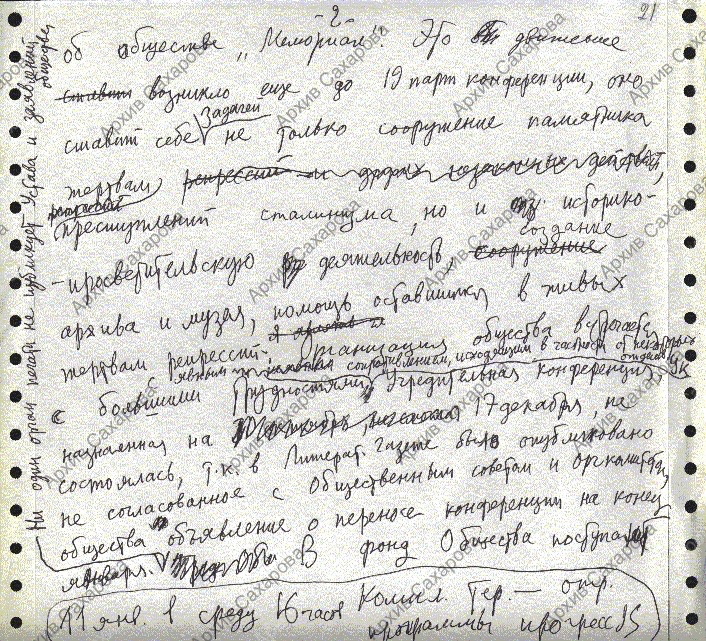 2
21
об обществе „Мемориал". Это движение
ставит возникло еще до 19 парт конференции, оно
ставит себе задачей не только сооружение памятника
жертвам репрессий и других незаконных действий,
репрессий
преступлений сталинизма, но и историко-
-просветительскую деятельность, сооружение создание
архива и музея, помощь оставшимся в живых
жертвам репрессий. Организация общества встречается
явным сопротивлением, исходящим в частности от некоторых
отделов ЦК
с большими трудностями, Учредительная конференция,
назначенная на 17 декабря, не
состоялась, т.к. в Литерат газете было опубликовано
не согласованное с Общественным советом и Оргкомитетом
общества объявление о переносе конференции на конец
января. В фонд Общества поступа
Ни один орган печати не публикует Устава и заявлений
общества
11 янв. в среду 16 часов Комил. Гер. — отр.
программы прогресс
Архив Сахарова